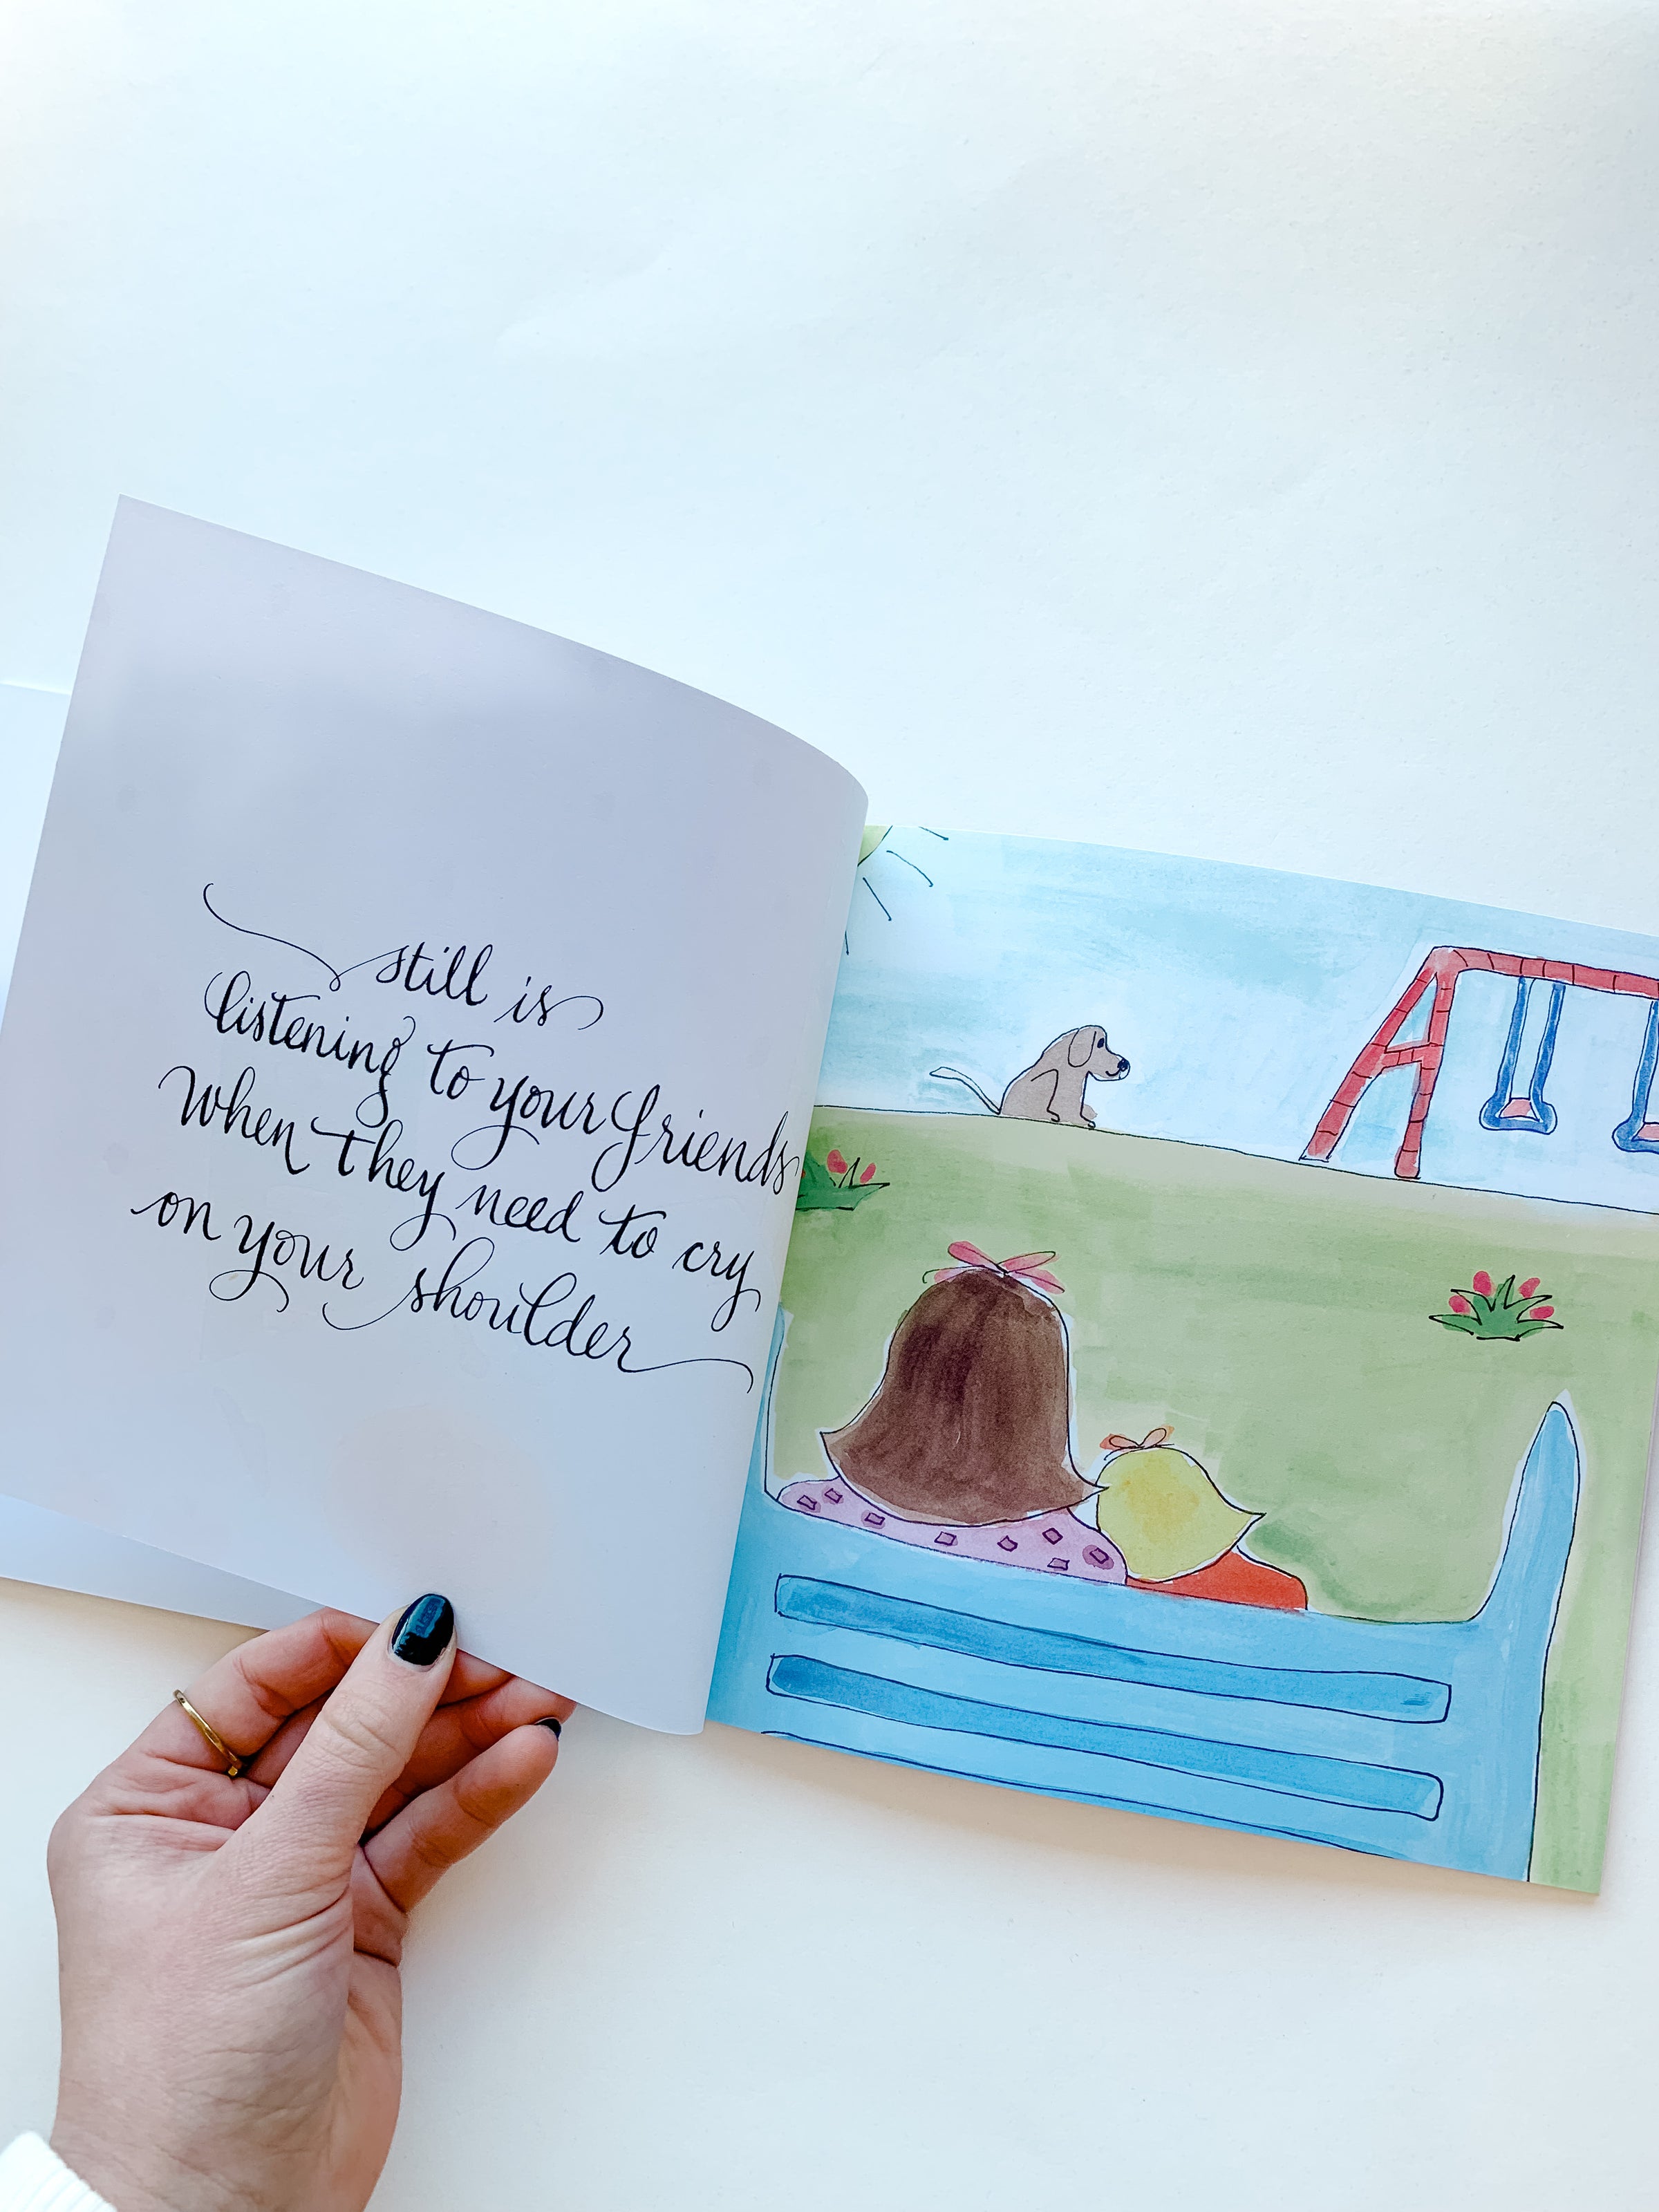 still is
listening to your friends
when they need to cry
on your shoulder